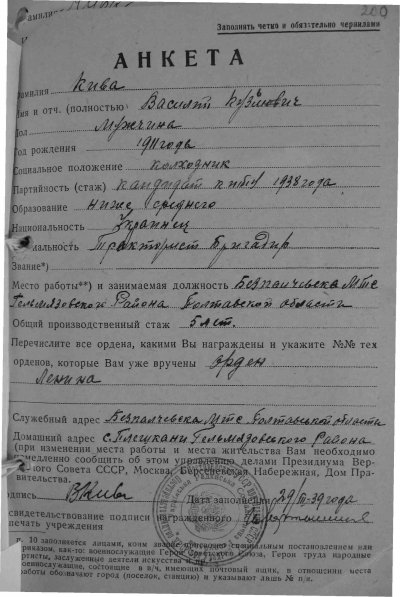 260
Фамилия
Заполнять четко и обязательно чернилами
АНКЕТА
Фамилия Кива
Имя и отч. (полностью) Василий Кузьмович
Пол Мужчина
Год рождения 1911 года
Социальное положение колхозник
Партийность (стаж) кандидат 1938 года
Образование ниже среднего
Национальность Украинец
Тракторист Бригадир
Звание*)
Место работы**) и занимаемая должность Безпальчевска МТС
Гельмязовского Района Полтавской области
Общий производственный стаж 5 лет.
Перечислите все ордена, какими Вы награждены и укажите №№ тех
орденов, которые Вам уже вручены орден
Ленина
Служебный адрес Безпалчевска МТС Полтавськой области
Домашний адрес с. Плешкани Гельмязовського Района
(при изменении места работы и места жительства Вам необходимо
немедленно сообщить об этом управлению делами Президиума Вер-
ного Совета СССР, Москва, Берсеневская Набережная, Дом Пра-
вительства.
подпись ВКива Дата заполнения 39 года
свидетельствование подписи награжденного
печать учреждения
п. 10 заполняется лицами, коим звание присвоено специальным постановлением или
приказом, как-то: военнослужащие Герои Советского Союза, Герои труда народные
артисты, заслуженные деятели искусства и
военнослужащие, состоящие в а/ч, имеющих почтовый ящик, в отношении места
работы обозначают город (поселок, станцию) и указывают лишь № п/я.